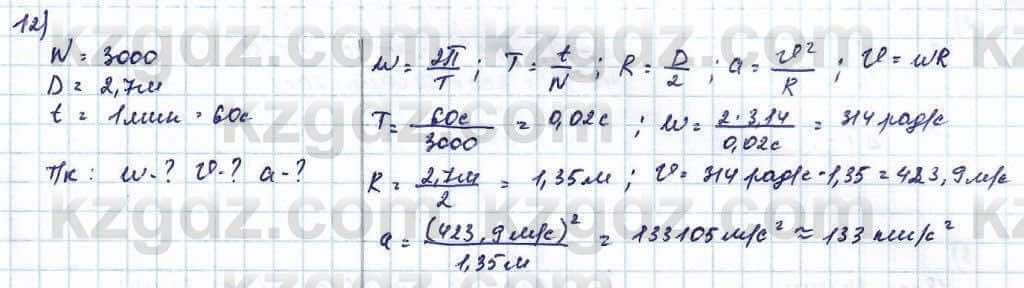 12)
N = 3000
D = 2,7м
t = 1 мин = 60с
Т/к: ω-? υ-? a-?
ω = 2π/T ; T = t/N ; R = D/2 ; a = υ²/R ; υ = ωR
T = 60с/3000 = 0,02с ; ω = 2·3,14/0,02с = 314 рад/с
R = 2,7м/2 = 1,35м ; υ = 314 рад/с · 1,35 = 423,9 м/с
a = (423,9 м/с)²/1,35м = 133105 м/с² ≈ 133 км/с²
kzgdz.com kzgdz.com kzgdz.com